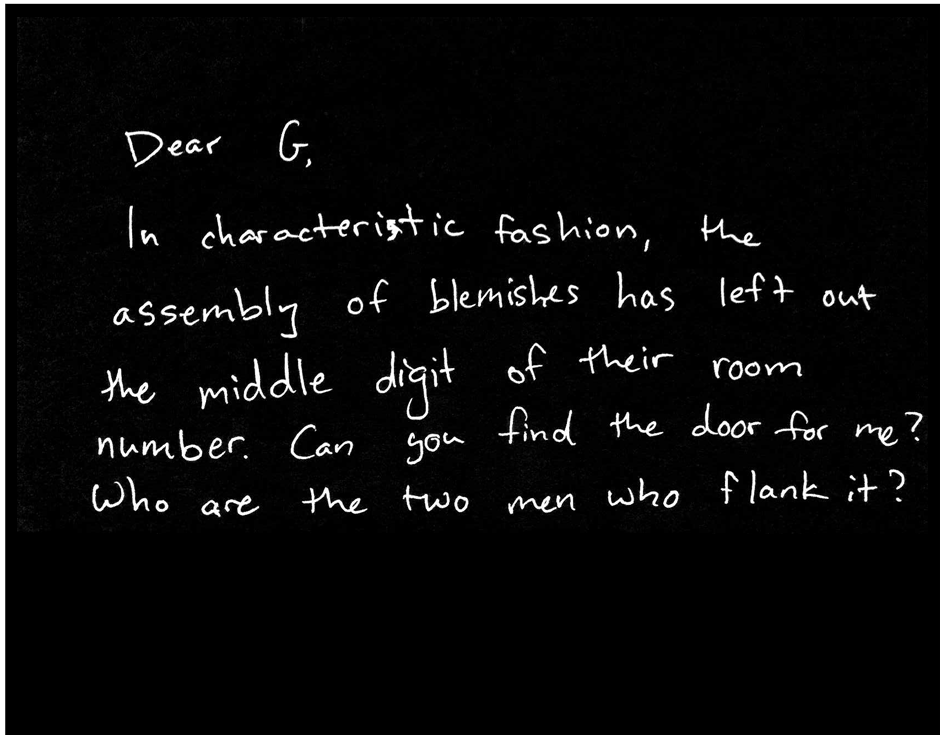 Dear G,
In characteristic fashion, the
assembly of blemishes has left out
the middle digit of their room
number. Can you find the door for me?
Who are the two men who flank it?